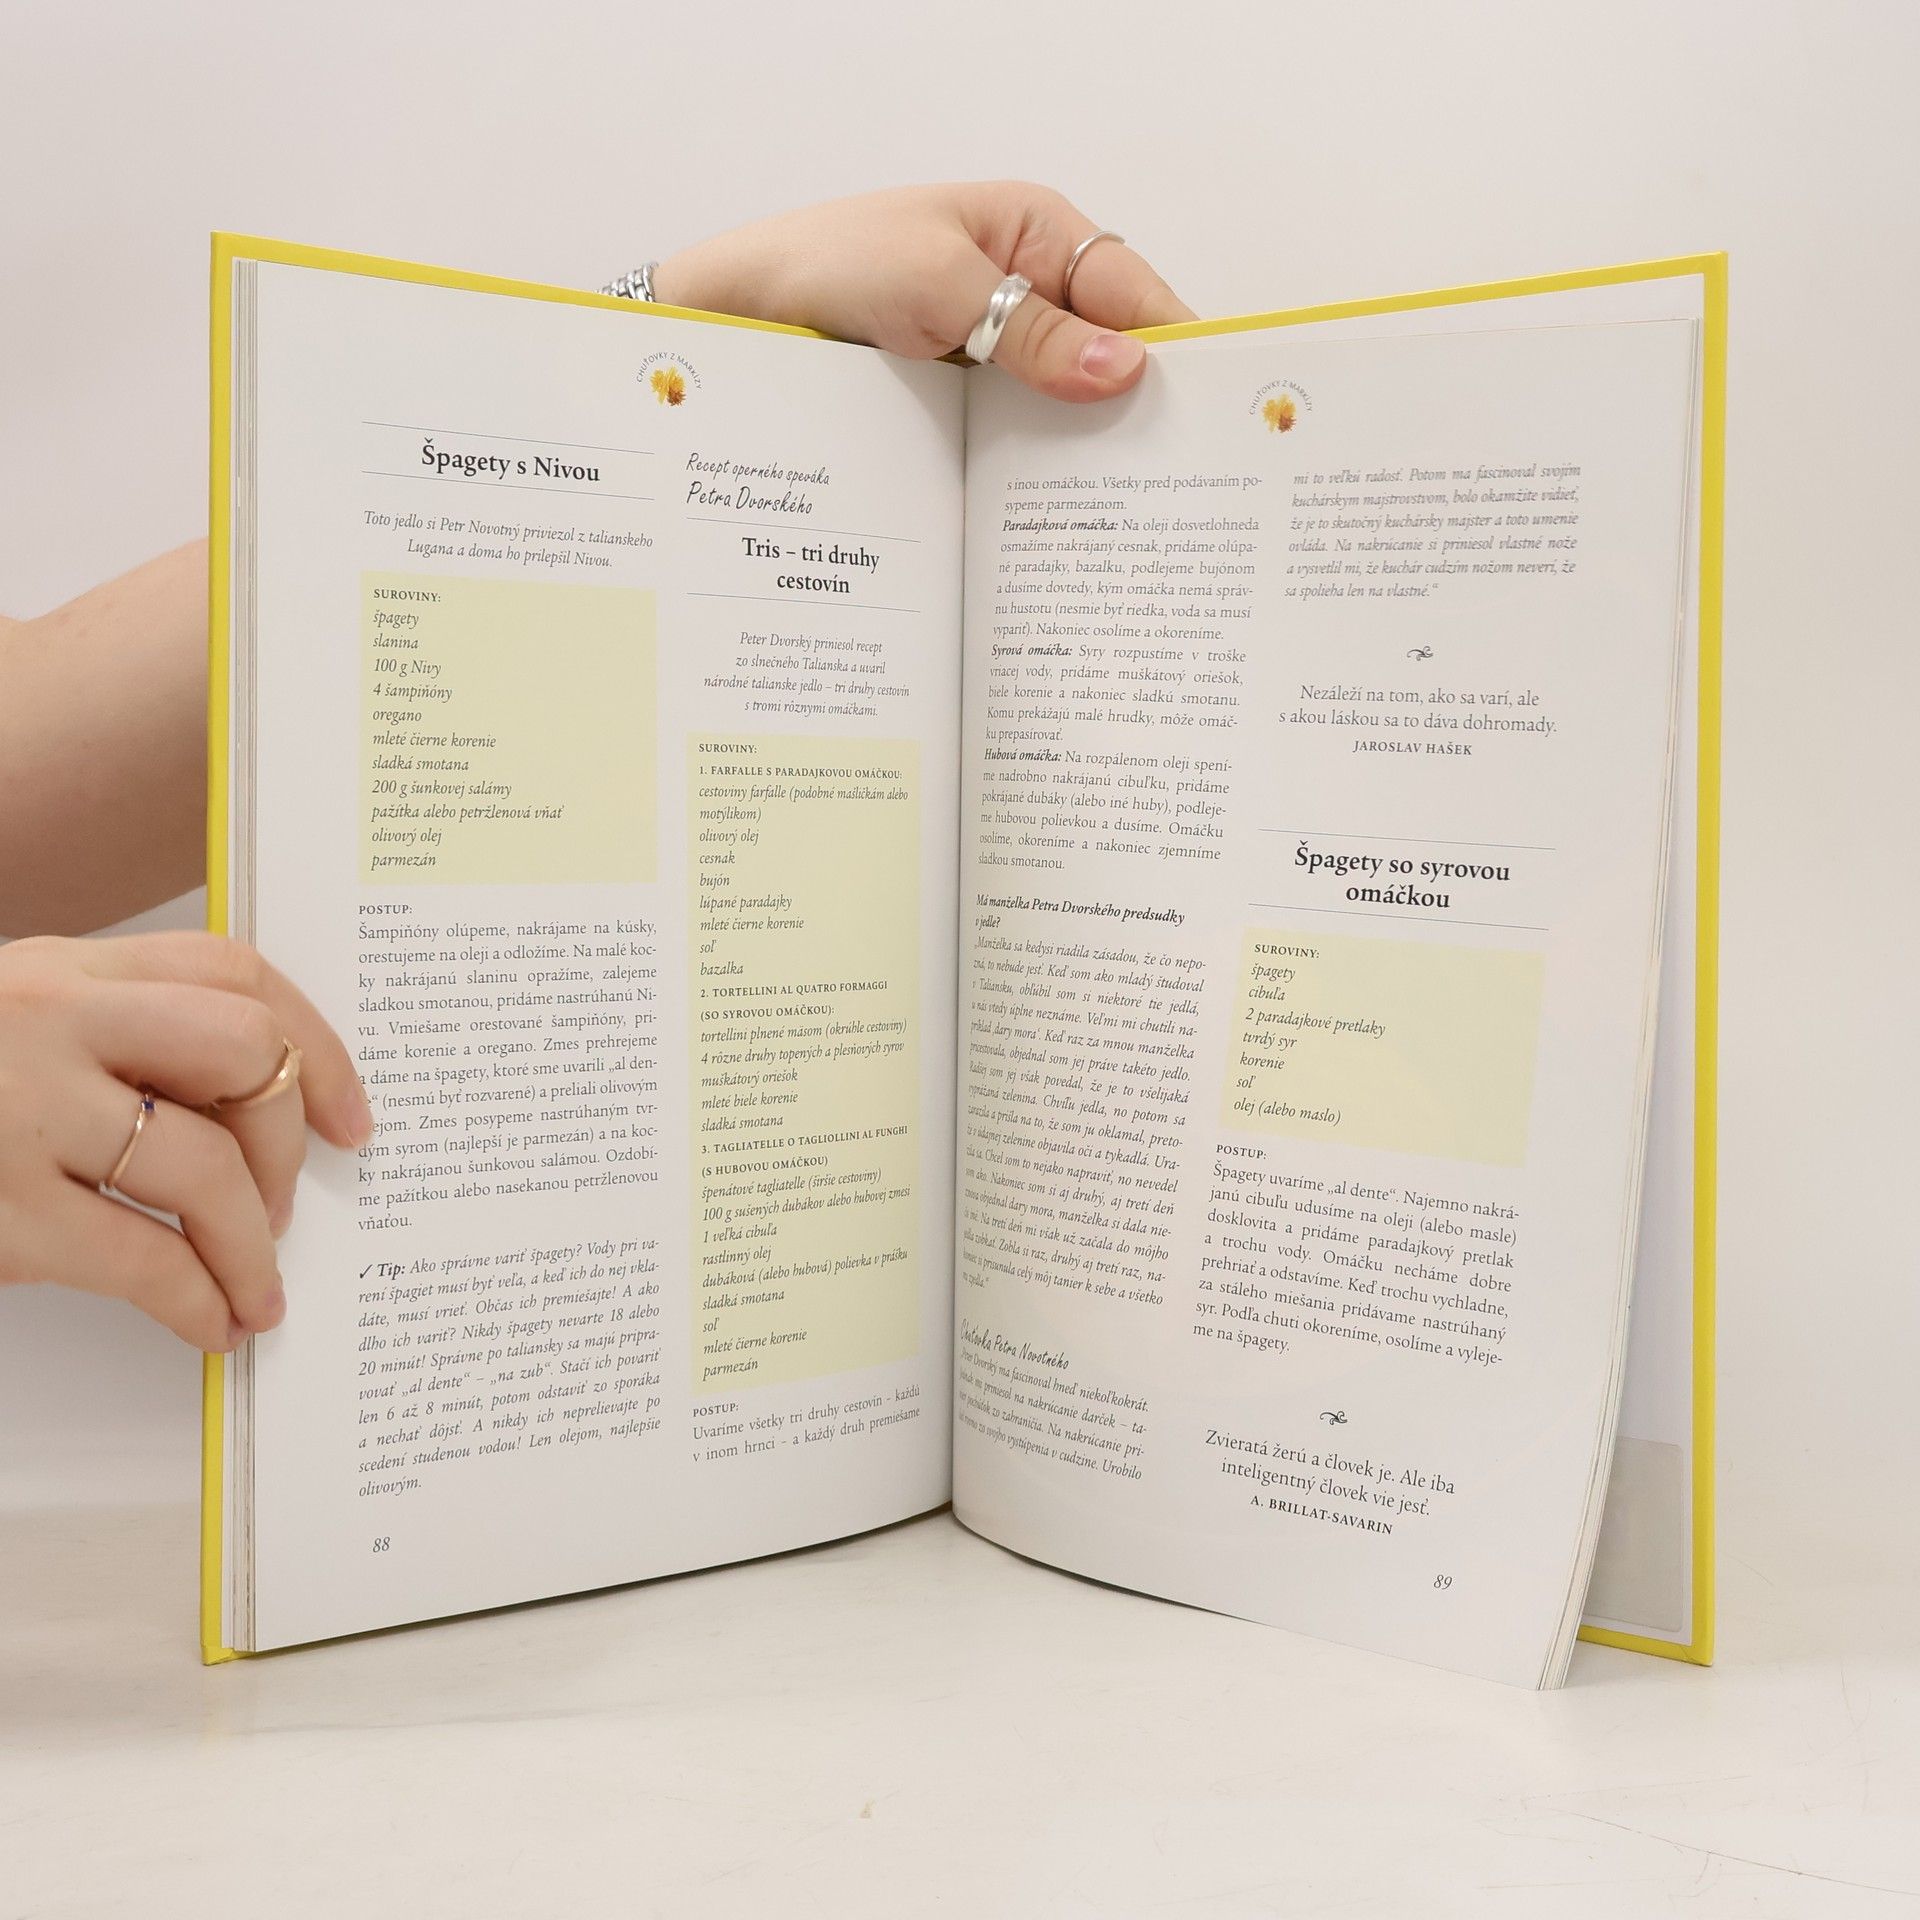 CHUŤOVKY Z MARKÍZY
Špagety s Nivou
Toto jedlo si Petr Novotný priviezol z talianskeho
Lugana a doma ho prilepšil Nivou.
SUROVINY:
špagety
slanina
100 g Nivy
4 šampiňóny
oregano
mleté čierne korenie
sladká smotana
200 g šunkovej salámy
pažítka alebo petržlenová vňať
olivový olej
parmezán
POSTUP:
Šampiňóny olúpeme, nakrájame na kúsky,
orestujeme na oleji a odložíme. Na malé koc-
ky nakrájanú slaninu opražíme, zalejeme
sladkou smotanou, pridáme nastrúhanú Ni-
vu. Vmiešame orestované šampiňóny, pri-
dáme korenie a oregano. Zmes prehrejeme
a dáme na špagety, ktoré sme uvarili „al den-
te“ (nesmú byť rozvarené) a preliali olivovým
ejom. Zmes posypeme nastrúhaným tvr-
dým syrom (najlepší je parmezán) a na koc-
ky nakrájanou šunkovou salámou. Ozdobí-
me pažítkou alebo nasekanou petržlenovou
vňaťou.
✓ Tip: Ako správne variť špagety? Vody pri va-
rení špagiet musí byť veľa, a keď ich do nej vkla-
dáte, musí vrieť. Občas ich premiešajte! A ako
dlho ich variť? Nikdy špagety nevarte 18 alebo
20 minút! Správne po taliansky sa majú pripra-
vovať „al dente“ – „na zub“. Stačí ich povariť
len 6 až 8 minút, potom odstaviť zo sporáka
a nechať dôjsť. A nikdy ich neprelievajte po
scedení studenou vodou! Len olejom, najlepšie
olivovým.
88
Recept operného speváka
Petra Dvorského
Tris – tri druhy
cestovín
Peter Dvorský priniesol recept
zo slnečného Talianska a uvaril
národné talianske jedlo – tri druhy cestovín
s tromi rôznymi omáčkami.
SUROVINY:
1. FARFALLE S PARADAJKOVOU OMÁČKOU:
cestoviny farfalle (podobné mašličkám alebo
motýlikom)
olivový olej
cesnak
bujón
lúpané paradajky
mleté čierne korenie
soľ
bazalka
2. TORTELLINI AL QUATRO FORMAGGI
(SO SYROVOU OMÁČKOU):
tortellini plnené mäsom (okrúhle cestoviny)
4 rôzne druhy topených a plesňových syrov
muškátový oriešok
mleté biele korenie
sladká smotana
3. TAGLIATELLE O TAGLIOLLINI AL FUNGHI
(S HUBOVOU OMÁČKOU)
špenátové tagliatelle (širšie cestoviny)
100 g sušených dubákov alebo hubovej zmesi
1 veľká cibuľa
rastlinný olej
dubáková (alebo hubová) polievka v prášku
sladká smotana
soľ
mleté čierne korenie
parmezán
POSTUP:
Uvaríme všetky tri druhy cestovín - každú
v inom hrnci - a každý druh premiešame
CHUŤOVKY Z MARKÍZY
s inou omáčkou. Všetky pred podávaním po-
sypeme parmezánom.
Paradajková omáčka: Na oleji dosvetlohneda
osmažíme nakrájaný cesnak, pridáme olúpa-
né paradajky, bazalku, podlejeme bujónom
a dusíme dovtedy, kým omáčka nemá správ-
nu hustotu (nesmie byť riedka, voda sa musí
vypariť). Nakoniec osolíme a okoreníme.
Syrová omáčka: Syry rozpustíme v troške
vriacej vody, pridáme muškátový oriešok,
biele korenie a nakoniec sladkú smotanu.
Komu prekážajú malé hrudky, môže omáč-
ku prepasírovať.
Hubová omáčka: Na rozpálenom oleji spení-
me nadrobno nakrájanú cibuľku, pridáme
pokrájané dubáky (alebo iné huby), podleje-
me hubovou polievkou a dusíme. Omáčku
osolíme, okoreníme a nakoniec zjemníme
sladkou smotanou.
Má manželka Petra Dvorského predsudky
v jedle?
„Manželka sa kedysi riadila zásadou, že čo nepo-
zná, to nebude jesť. Keď som ako mladý študoval
v Taliansku, obľúbil som si niektoré tie jedlá,
u nás vtedy úplne neznáme. Veľmi mi chutili na-
príklad ‚dary mora‘. Keď raz za mnou manželka
pricestovala, objednal som jej práve takéto jedlo.
Radšej som jej však povedal, že je to všelijaká
vyprážaná zelenina. Chvíľu jedla, no potom sa
zarazila a prišla na to, že som ju oklamal, preto-
že v údajnej zelenine objavila oči a tykadlá. Ura-
zila sa. Chcel som to nejako napraviť, no nevedel
som ako. Nakoniec som si aj druhý, aj tretí deň
znova objednal dary mora, manželka si dala nie-
čo iné. Na tretí deň mi však už začala do môjho
jedla zobkať. Zobla si raz, druhý aj tretí raz, na-
koniec si prisunula celý môj tanier k sebe a všetko
mi zjedla.“
Chuťovka Petra Novotného
„Peter Dvorský ma fascinoval hneď niekoľkokrát.
mi priniesol na nakrúcanie darček – ta-
pochúťok zo zahraničia. Na nakrúcanie pri-
rovno zo svojho vystúpenia v cudzine. Urobilo
mi to veľkú radosť. Potom ma fascinoval svojím
kuchárskym majstrovstvom, bolo okamžite vidieť,
že je to skutočný kuchársky majster a toto umenie
ovláda. Na nakrúcanie si priniesol vlastné nože
a vysvetlil mi, že kuchár cudzím nožom neverí, že
sa spolieha len na vlastné.“
Nezáleží na tom, ako sa varí, ale
s akou láskou sa to dáva dohromady.
JAROSLAV HAŠEK
Špagety so syrovou
omáčkou
SUROVINY:
špagety
cibuľa
2 paradajkové pretlaky
tvrdý syr
korenie
soľ
olej (alebo maslo)
POSTUP:
Špagety uvaríme „al dente“. Najemno nakrá-
janú cibuľu udusíme na oleji (alebo masle)
dosklovita a pridáme paradajkový pretlak
a trochu vody. Omáčku necháme dobre
prehriať a odstavíme. Keď trochu vychladne,
za stáleho miešania pridávame nastrúhaný
syr. Podľa chuti okoreníme, osolíme a vyleje-
me na špagety.
Zvieratá žerú a človek je. Ale iba
inteligentný človek vie jesť.
A. BRILLAT-SAVARIN
89